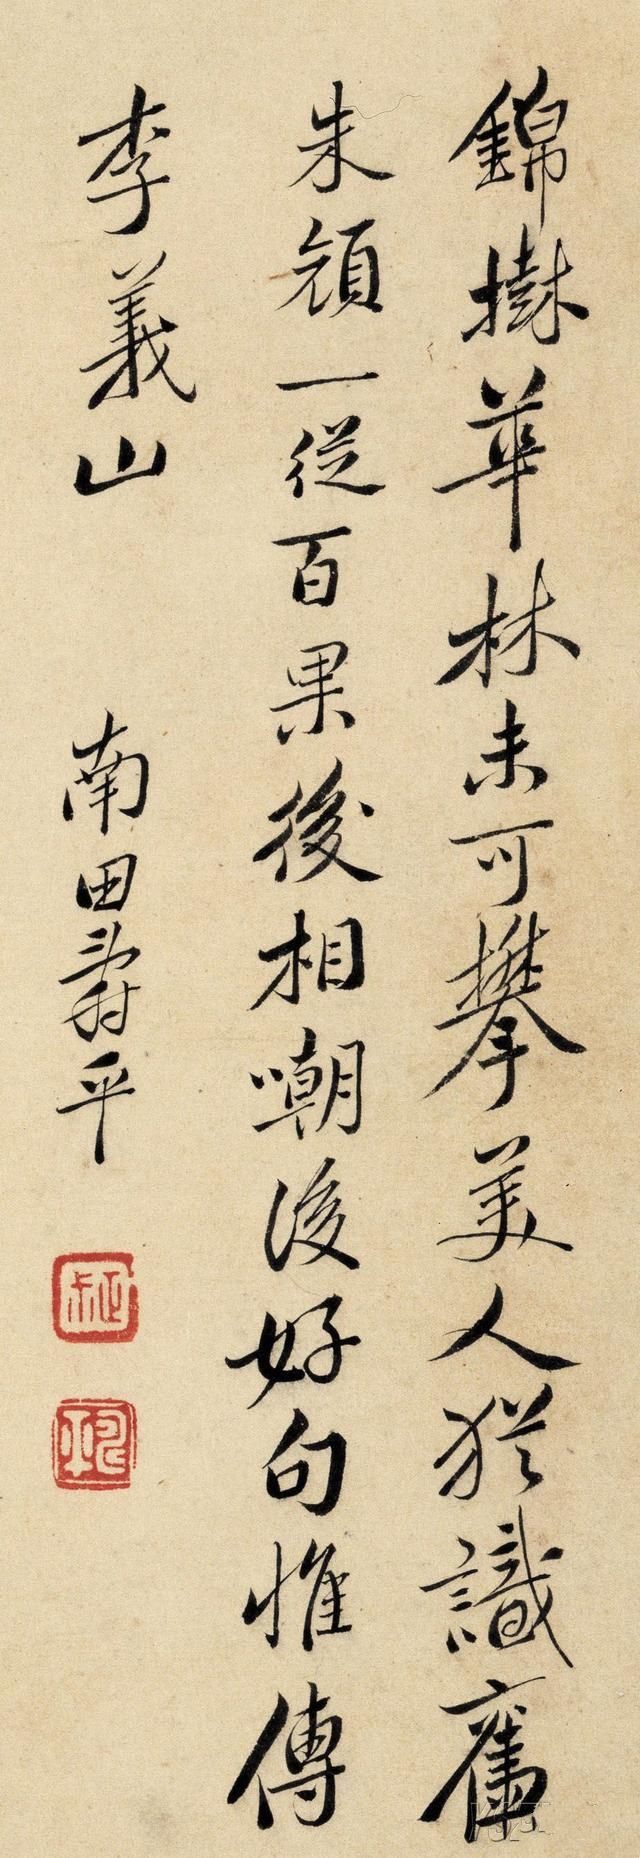 錦樹華林未可攀美人猶識舊
朱顏一從百果後相嘲後好句惟傳
李義山
南田壽平
正叔
壽平